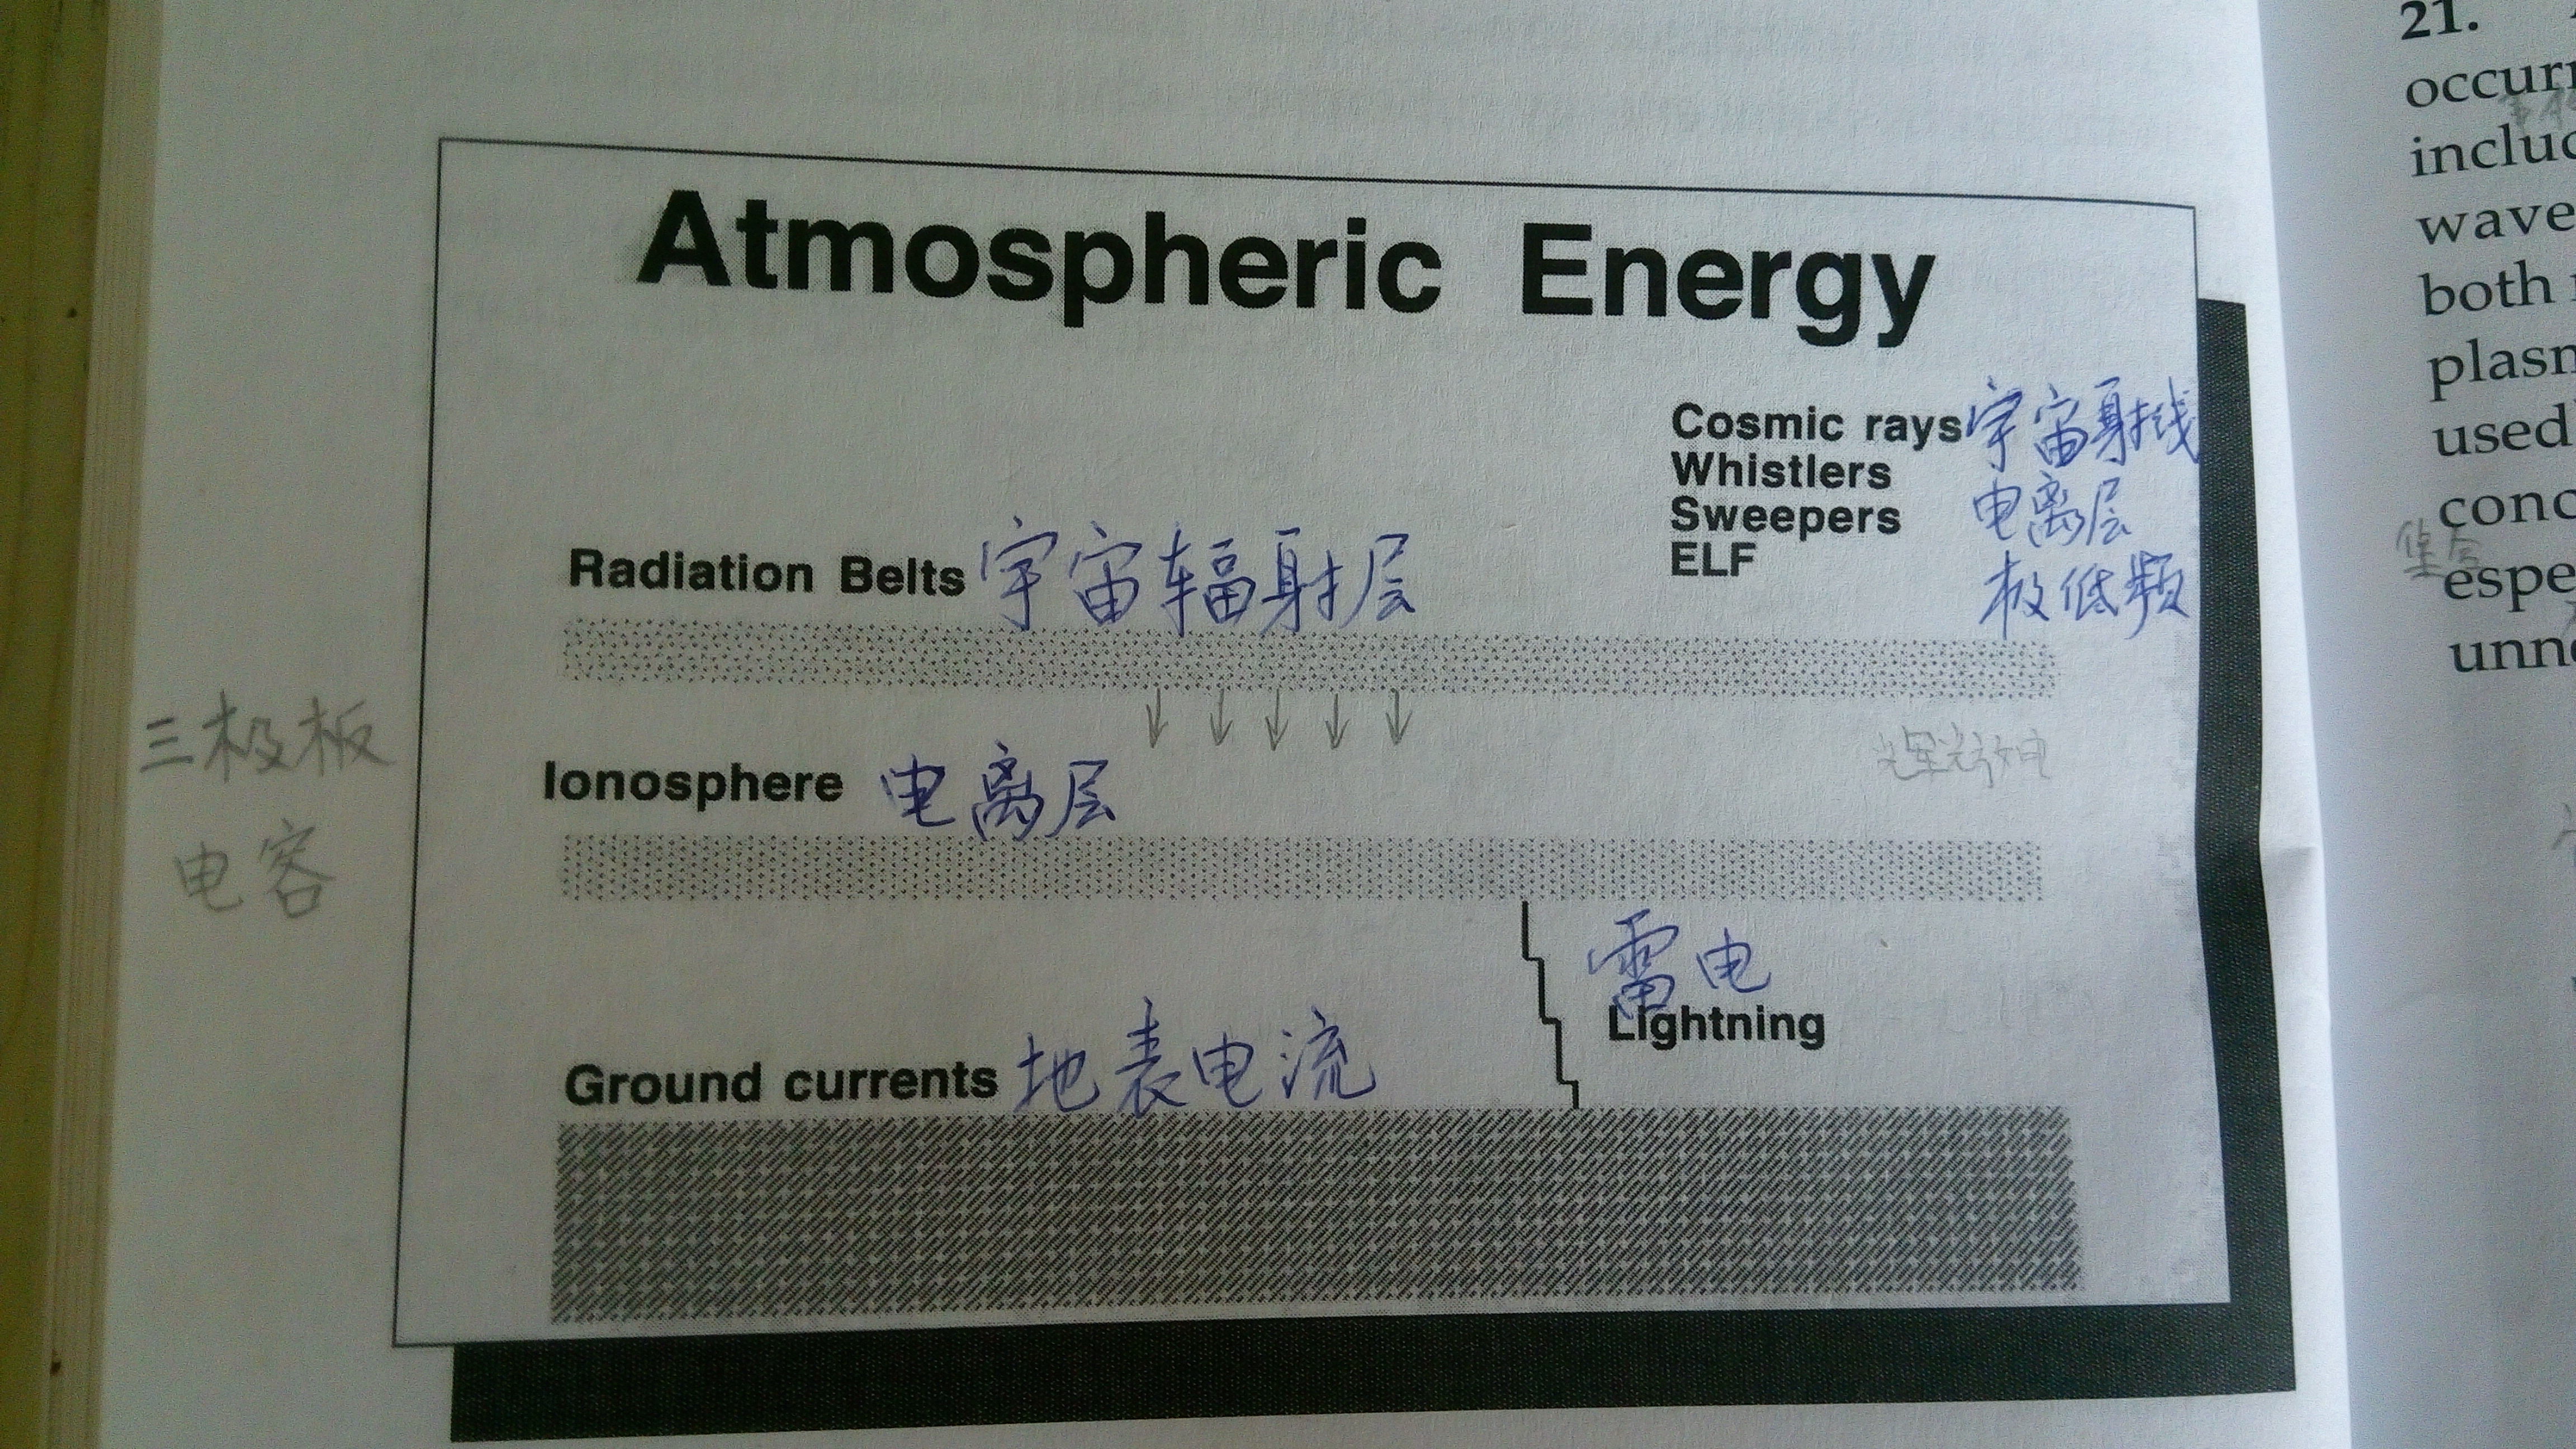 Atmospheric Energy
Cosmic rays 宇宙射线
Whistlers
Sweepers 电离层
ELF 极低频
Radiation Belts 宇宙辐射层
三极板
电容
辉光放电
Ionosphere 电离层
雷电
Lightning
Ground currents 地表电流
21.
occurr
includ
wave
both
plasm
used
conc
espe
unne